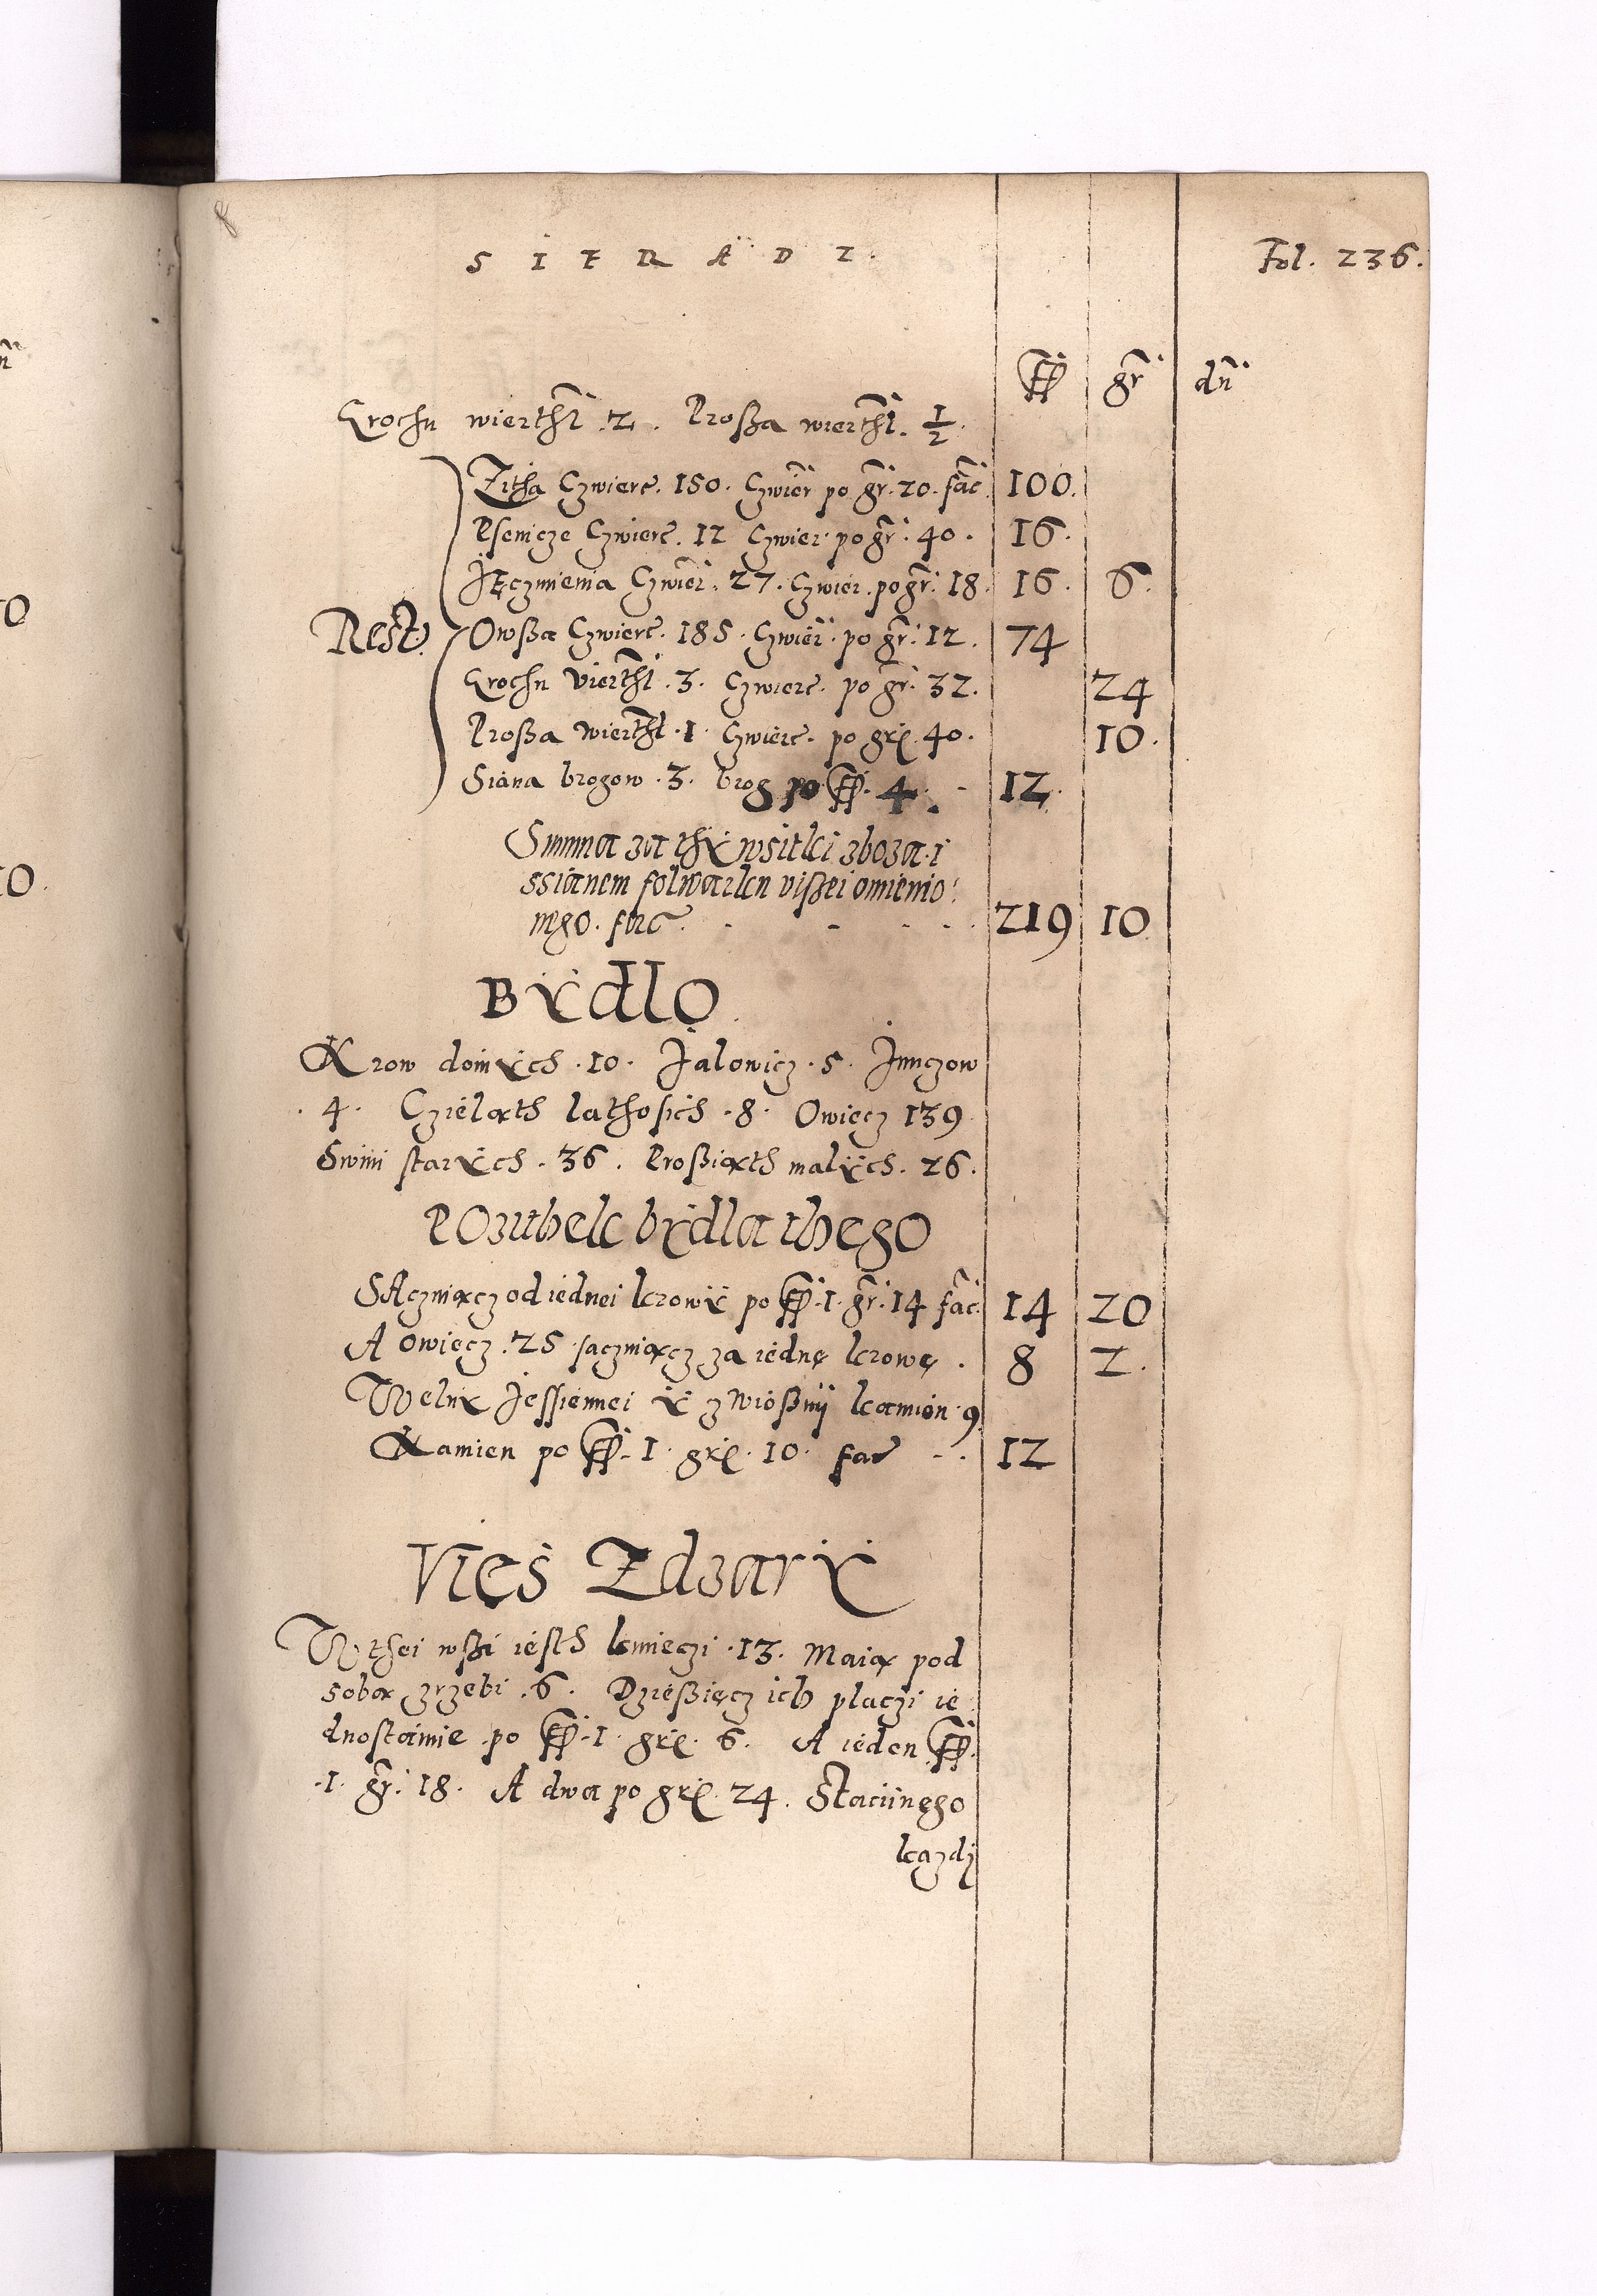 SIERADZ.
Fol. 236.
ff gr dn
Grochu wierthl. 2. Prossa wierthl. 1/2.
Zitha Czwierc. 150. Czwier po gr. 20. fac. 100.
Psenicze Czwierc. 12 Czwier po gr. 40. 16.
Jęczmienia Czwier. 27. Czwier. po gr. 18. 16. 6.
Rest. Owssa Czwierc. 185. Czwier. po gr. 12. 74
Grochu vierthl. 3. Czwierc. po gr. 32. 24
Prossa wierthl. 1. Czwierc. po gr. 40. 10.
Siana brogow. 3. brog po ff. 4. 12.
Summa za thy wsitki zboza. i
ssianem folwarku vissei omienio:
nego. fac. 219 10
Bydlo
Krow doinych. 10. Jalowicz. 5. Junczow
. 4. Czieląth lathosich. 8. Owiecz 139
Swini starych. 36. Prossiąth malych. 26.
Pozithek bydla thego
Saczuiącz od iednei krowy po ff. 1. gr. 14 fac. 14 20
A owiecz. 25 saczuiącz za iednę krowę. 8 2.
Welny Jessiennei y z wiossny kamien. 9
Kamien po ff. 1. gr. 10. fac 12
Vies Zdzary
W thei wssi iesth kmieczi. 13. Maią pod
sobą zrzebi. 6. Dziessięcz ich placzi ie
dnostainie po ff. 1. gr. 6. A ieden ff.
.1. gr. 18. A dwa po gr. 24. Staciinego
kazdy